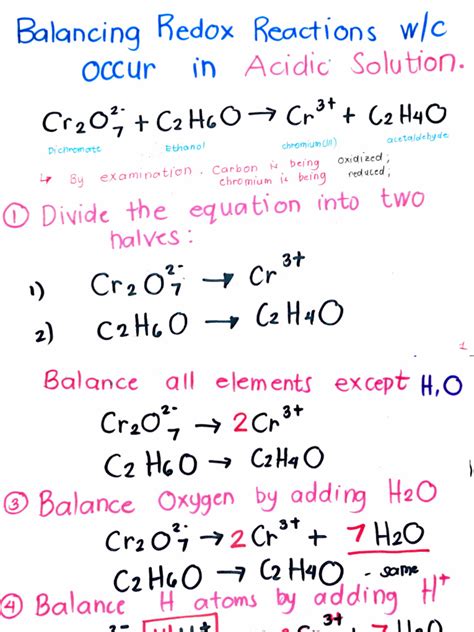 Balancing Redox Reactions w/c
occur in Acidic Solution.
Cr₂O₇²⁻ + C₂H₆O → Cr³⁺ + C₂H₄O
Dichromate Ethanol chromium(III) acetaldehyde
↳ By examination, Carbon is being oxidized;
chromium is being reduced;
① Divide the equation into two
halves:
1) Cr₂O₇²⁻ → Cr³⁺
2) C₂H₆O → C₂H₄O
Balance all elements except H,O
Cr₂O₇²⁻ → 2Cr³⁺
C₂H₆O → C₂H₄O
③ Balance Oxygen by adding H₂O
Cr₂O₇²⁻ → 2Cr³⁺ + 7H₂O
C₂H₆O → C₂H₄O - same
④ Balance H atoms by adding H⁺